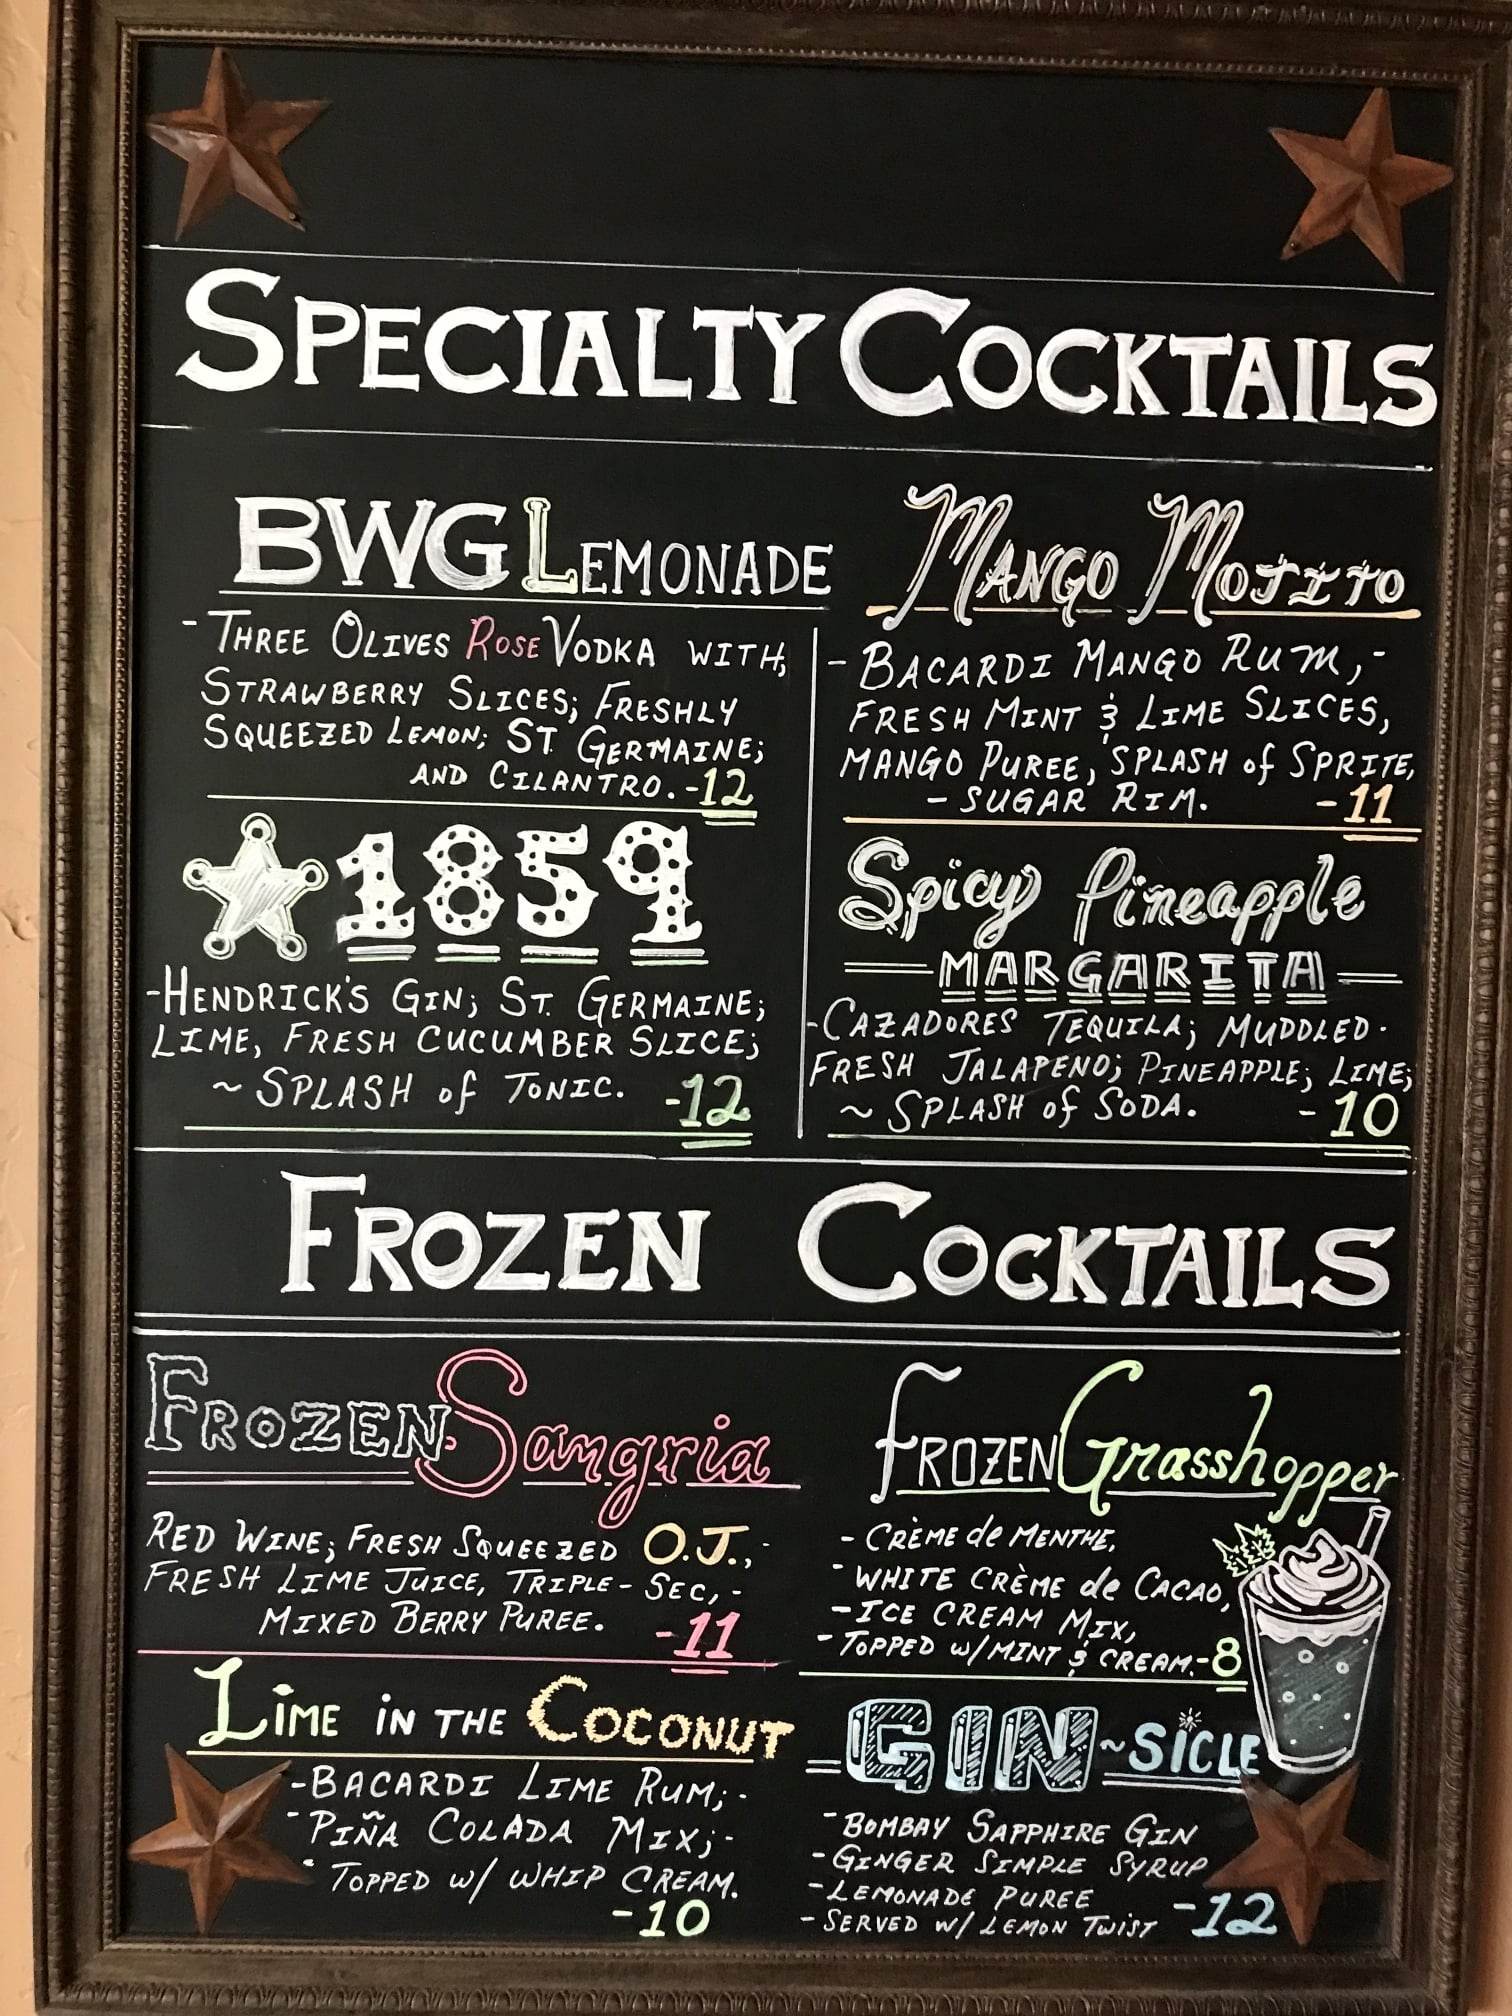 SPECIALTY COCKTAILS
BWG LEMONADE
- THREE OLIVES ROSE VODKA WITH,
STRAWBERRY SLICES; FRESHLY
SQUEEZED LEMON; ST. GERMAINE;
AND CILANTRO. -12
1859
-HENDRICK'S GIN; ST. GERMAINE;
LIME, FRESH CUCUMBER SLICE;
~ SPLASH of TONIC. -12
MANGO MOJITO
- BACARDI MANGO RUM,-
FRESH MINT & LIME SLICES,
MANGO PUREE, SPLASH of SPRITE,
- SUGAR RIM. -11
Spicy Pineapple
MARGARITA
-CAZADORES TEQUILA; MUDDLED.
FRESH JALAPENO; PINEAPPLE; LIME;
~ SPLASH of SODA. -10
FROZEN COCKTAILS
FROZEN Sangria
RED WINE; FRESH SQUEEZED O.J.,-
FRESH LIME JUICE, TRIPLE-SEC,-
MIXED BERRY PUREE. -11
LIME IN THE COCONUT
-BACARDI LIME RUM;-
-PIÑA COLADA MIX;-
- TOPPED W/ WHIP CREAM.
-10
FROZEN Grasshopper
- CRÈME de MENTHE,
- WHITE CRÈME de CACAO,
- ICE CREAM MIX,
- TOPPED W/ MINT & CREAM. -8
GIN~SICLE
- BOMBAY SAPPHIRE GIN
- GINGER SIMPLE SYRUP
- LEMONADE PUREE
- SERVED W/ LEMON TWIST -12